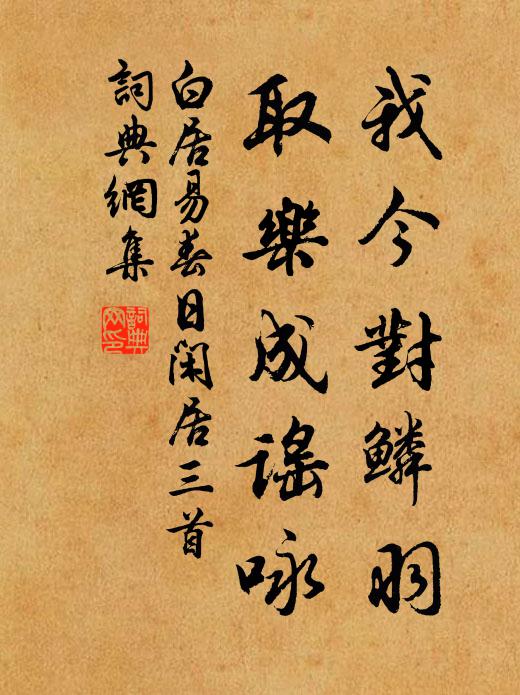 我今對鱗羽
取樂成謠咏
白居易春日閑居三首
詞典網集
詞典網印